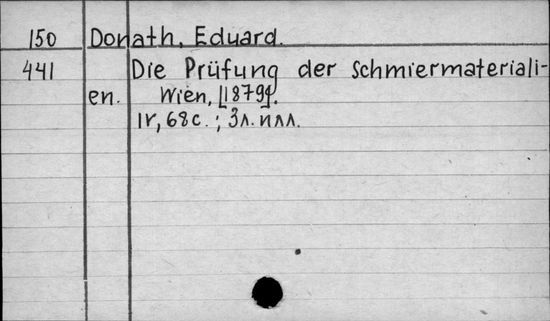 150 Donath, Eduard.
441 Die Prüfung der Schmiermateriali-
en. Wien, [1879].
IV, 68 с.; 3 л. илл.